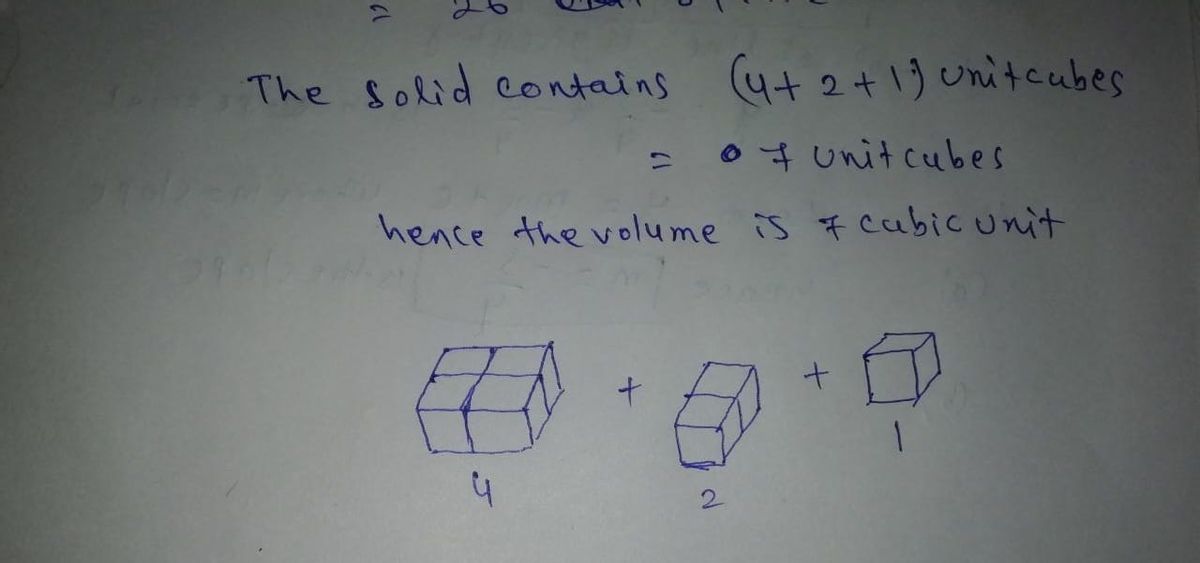 = 26
The solid contains (4+2+1) unitcubes
= 7 unitcubes
hence the volume is 7 cubic unit
+ +
1
4 2